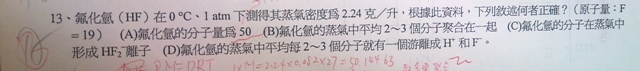 13、氟化氫（HF）在 0 ℃、1 atm 下測得其蒸氣密度爲 2.24 克／升，根據此資料，下列敘述何者正確？（原子量：F
＝19） (A)氟化氫的分子量爲 50 (B)氟化氫的蒸氣中平均 2～3 個分子聚合在一起 (C)氟化氫的分子在蒸氣中
形成 HF₂⁻離子 (D)氟化氫的蒸氣中平均每 2～3 個分子就有一個游離成 H⁺ 和 F⁻。